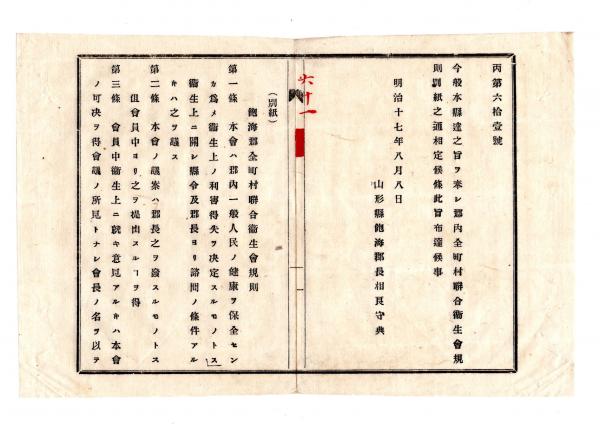 丙第六拾壹號
今般本縣達之旨ヲ奉シ郡内全町村聯合衞生會規
則別紙之通相定候條此旨布達候事
明治十七年八月八日
山形縣飽海郡長相良守典
六十一
(別紙)
飽海郡全町村聯合衞生會規則
第一條 本會ハ郡内一般人民ノ健康ヲ保全セン
カ爲メ衞生上ノ利害得失ヲ決定スルモノトス
衞生上ニ關シ縣令及郡長ヨリ諮問ノ條件アル
キハ之ヲ議ス
第二條 本會ノ議案ハ郡長之ヲ發スルモノトス
但會員中ヨリ之ヲ提出スルヿヲ得
第三條 會員中衞生上ニ就キ意見アルキハ本會
ノ可决ヲ得會議ノ所見トナシ會長ノ名ヲ以テ